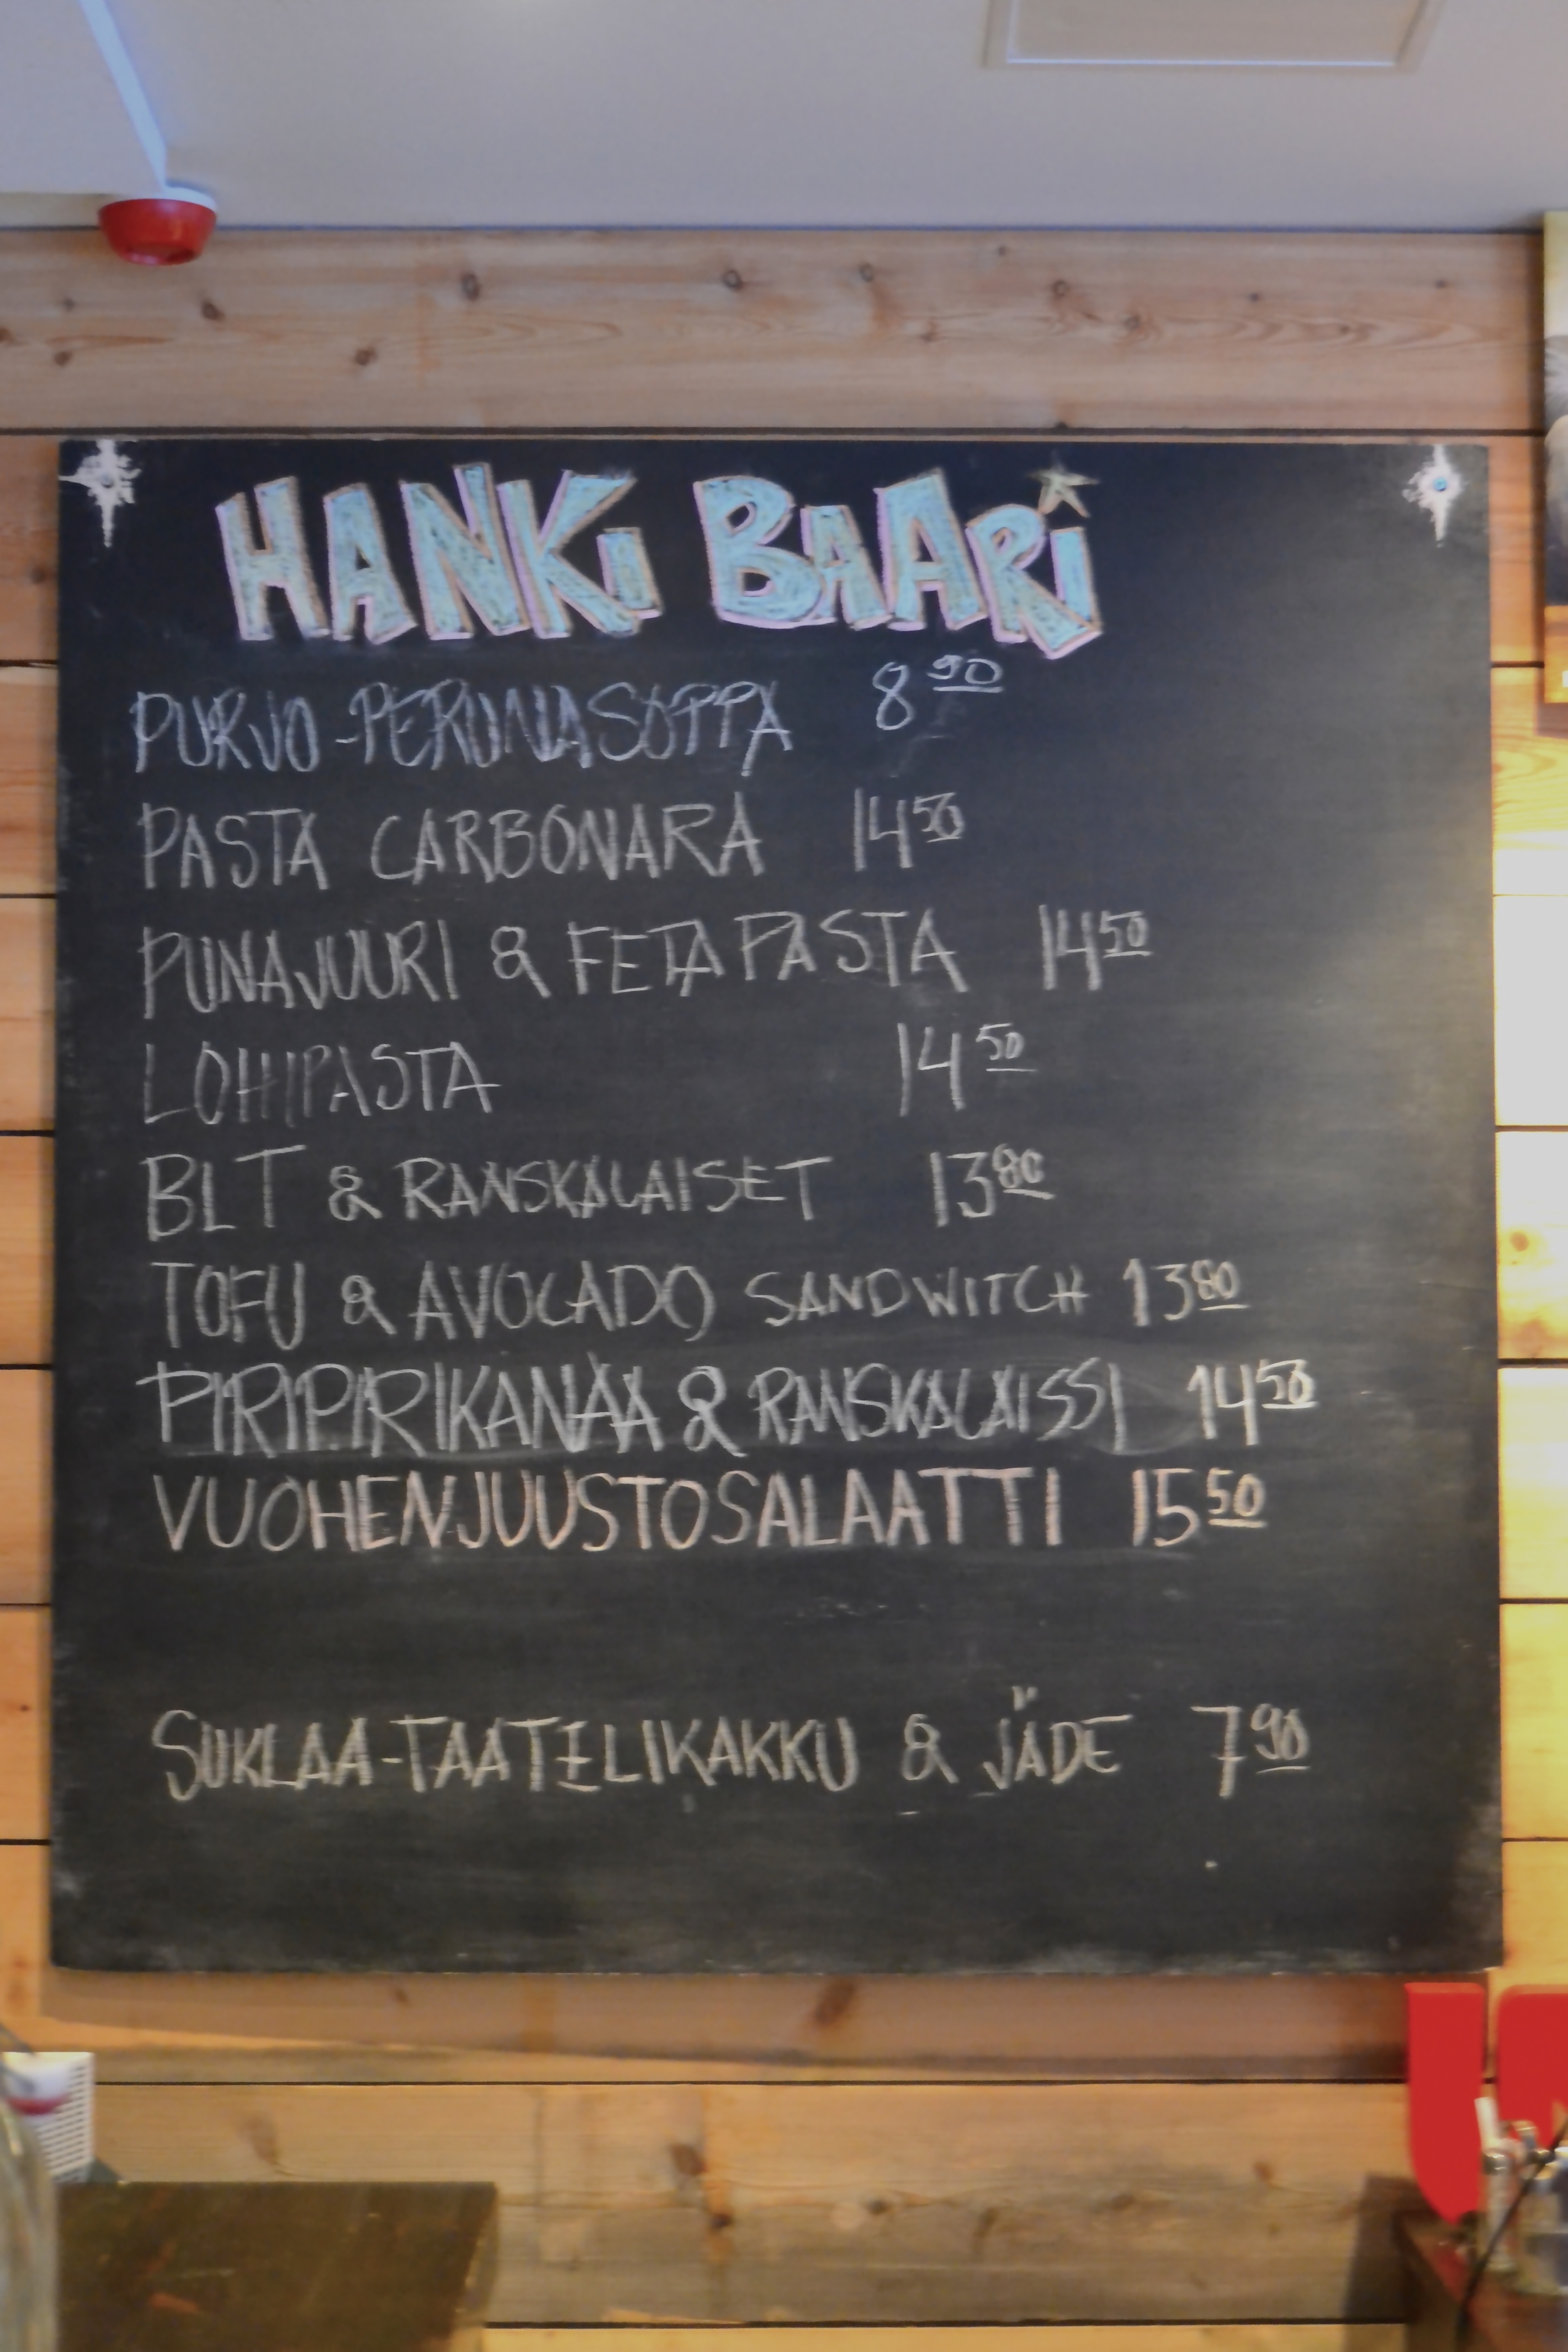 HANKi BAARi
PURJO-PERUNASOPPA 8 90
PASTA CARBONARA 14 50
PUNAJUURI & FETAPASTA 14 50
LOHIPASTA 14 50
BLT & RANSKALAISET 13 80
TOFU & AVOCADO SANDWITCH 13 80
PIRIPIRIKANAA & RANSKALAISSI 14 50
VUOHENJUUSTOSALAATTI 15 50
SUKLAA-TAATELIKAKKU & JÄDE 7 90